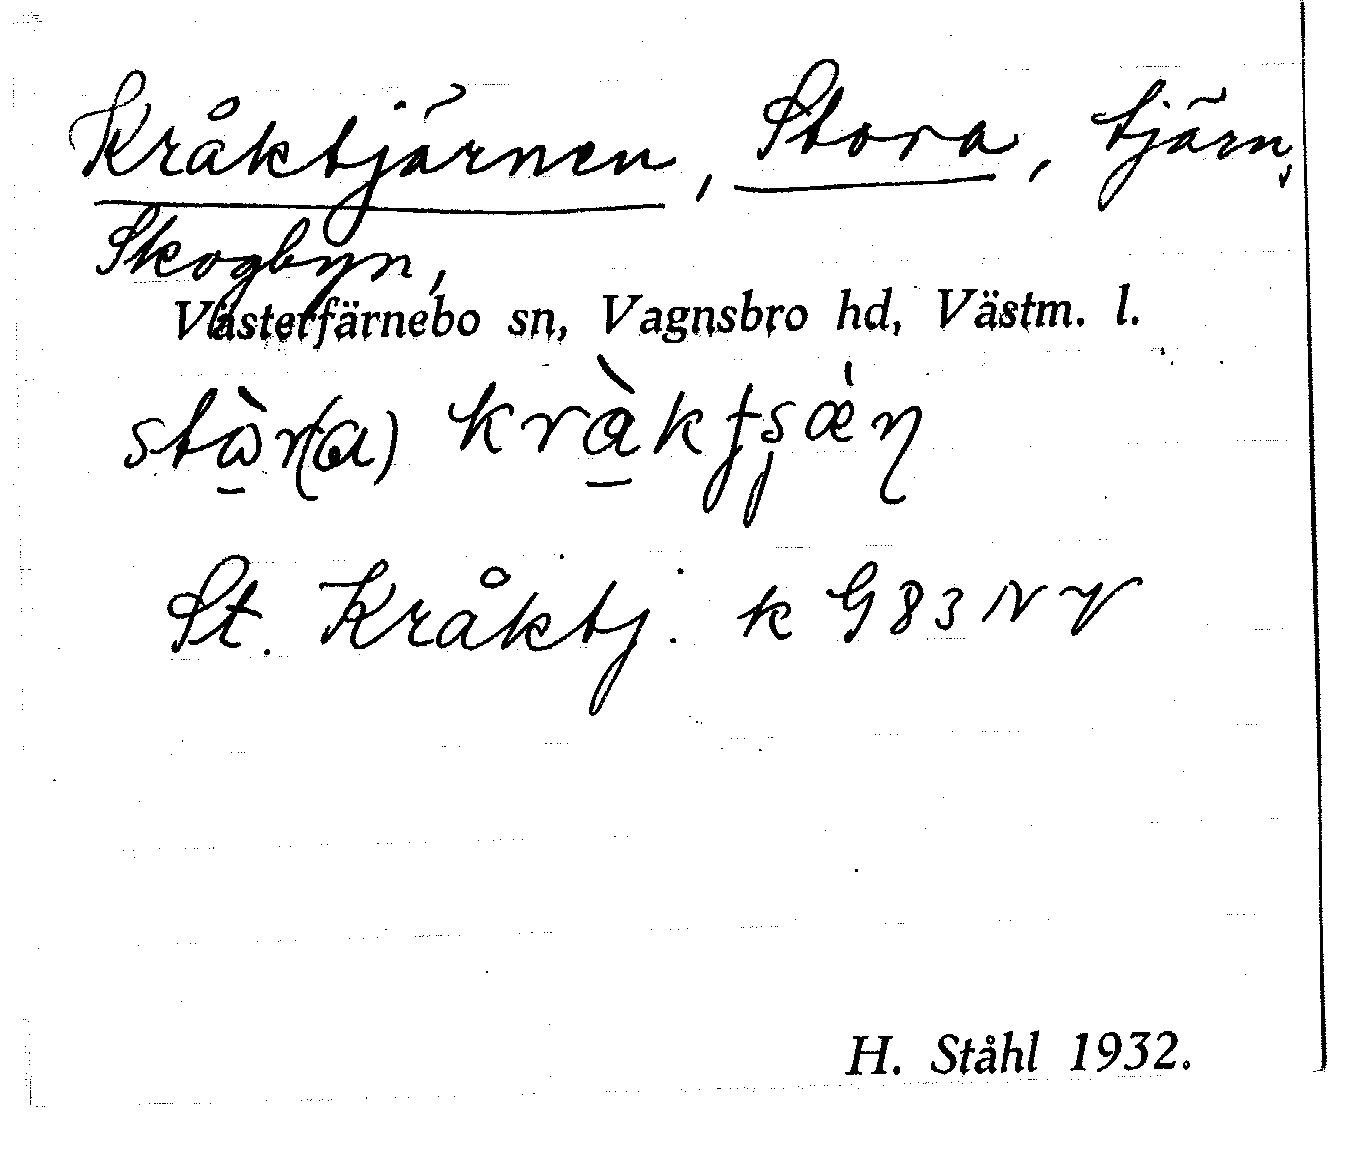 Kråktjärnen, Stora, tjärn,
Skogbyn,
Västerfärnebo sn, Vagnsbro hd, Västm. l.
St. Kråktj. k G 83 NV
H. Ståhl 1932.